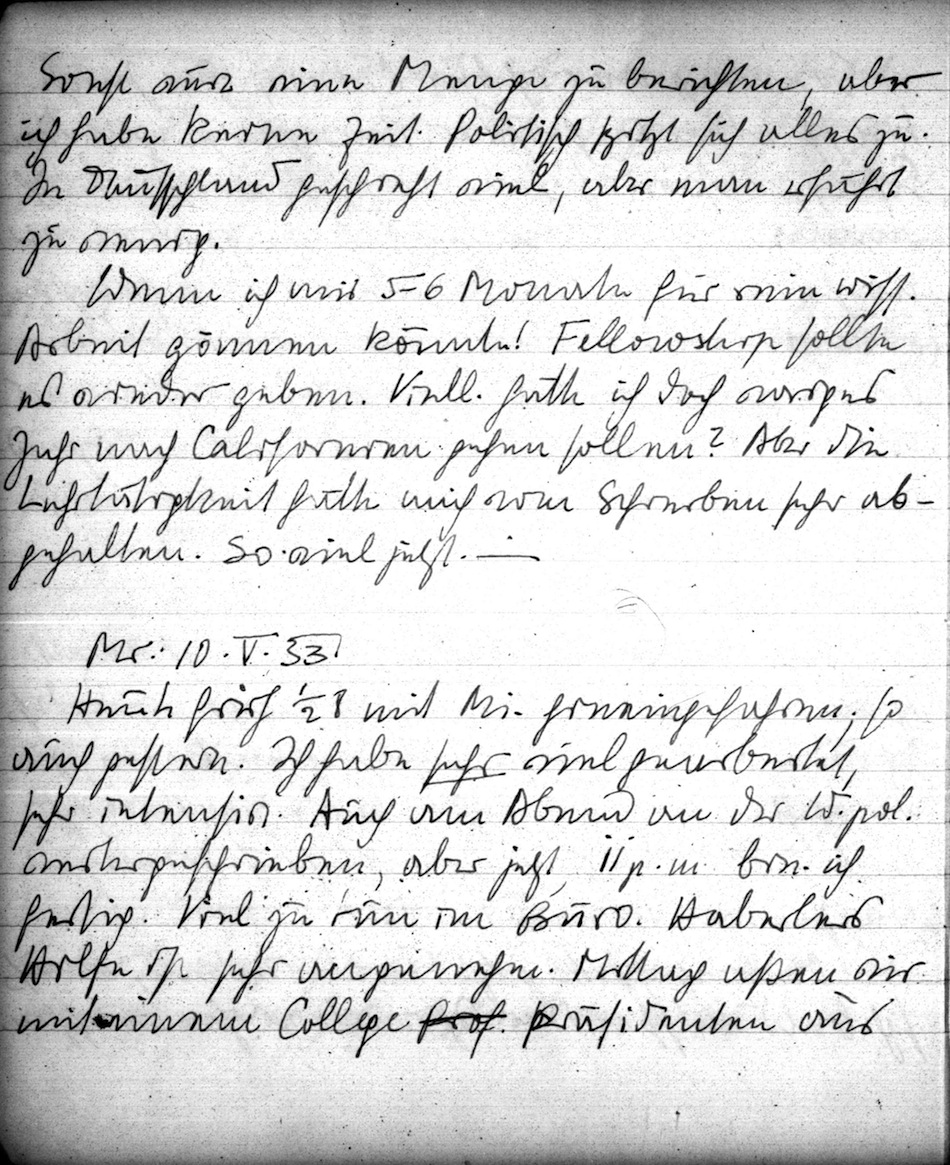 Sonst wäre eine Menge zu berichten, aber
ich habe keine Zeit. Politisch spitzt sich alles zu.
In Deutschland geschieht viel, aber man erfährt
zu wenig.
Wenn ich mir 5-6 Monate für rein wiss.
Arbeit gönnen könnte! Fellowship sollte
es wieder geben. Viell. hätte ich doch voriges
Jahr nach Californien gehen sollen? Aber die
Lehrtätigkeit hätte mich vom Schreiben sehr ab-
gehalten. So viel jetzt. —
Mi: 10. V. 33
Heute früh ½ 8 mit Mi. hineingefahren; so
auch gestern. Ich habe sehr viel gearbeitet,
sehr intensiv. Auch am Abend an der W. pol.
weitergeschrieben, aber jetzt 11 p. m bin ich
fertig. Viel zu tun im Büro. Haberlers
Hilfe ist sehr angenehm. Mittag aßen wir
mit einem College Prof. Präsidenten aus